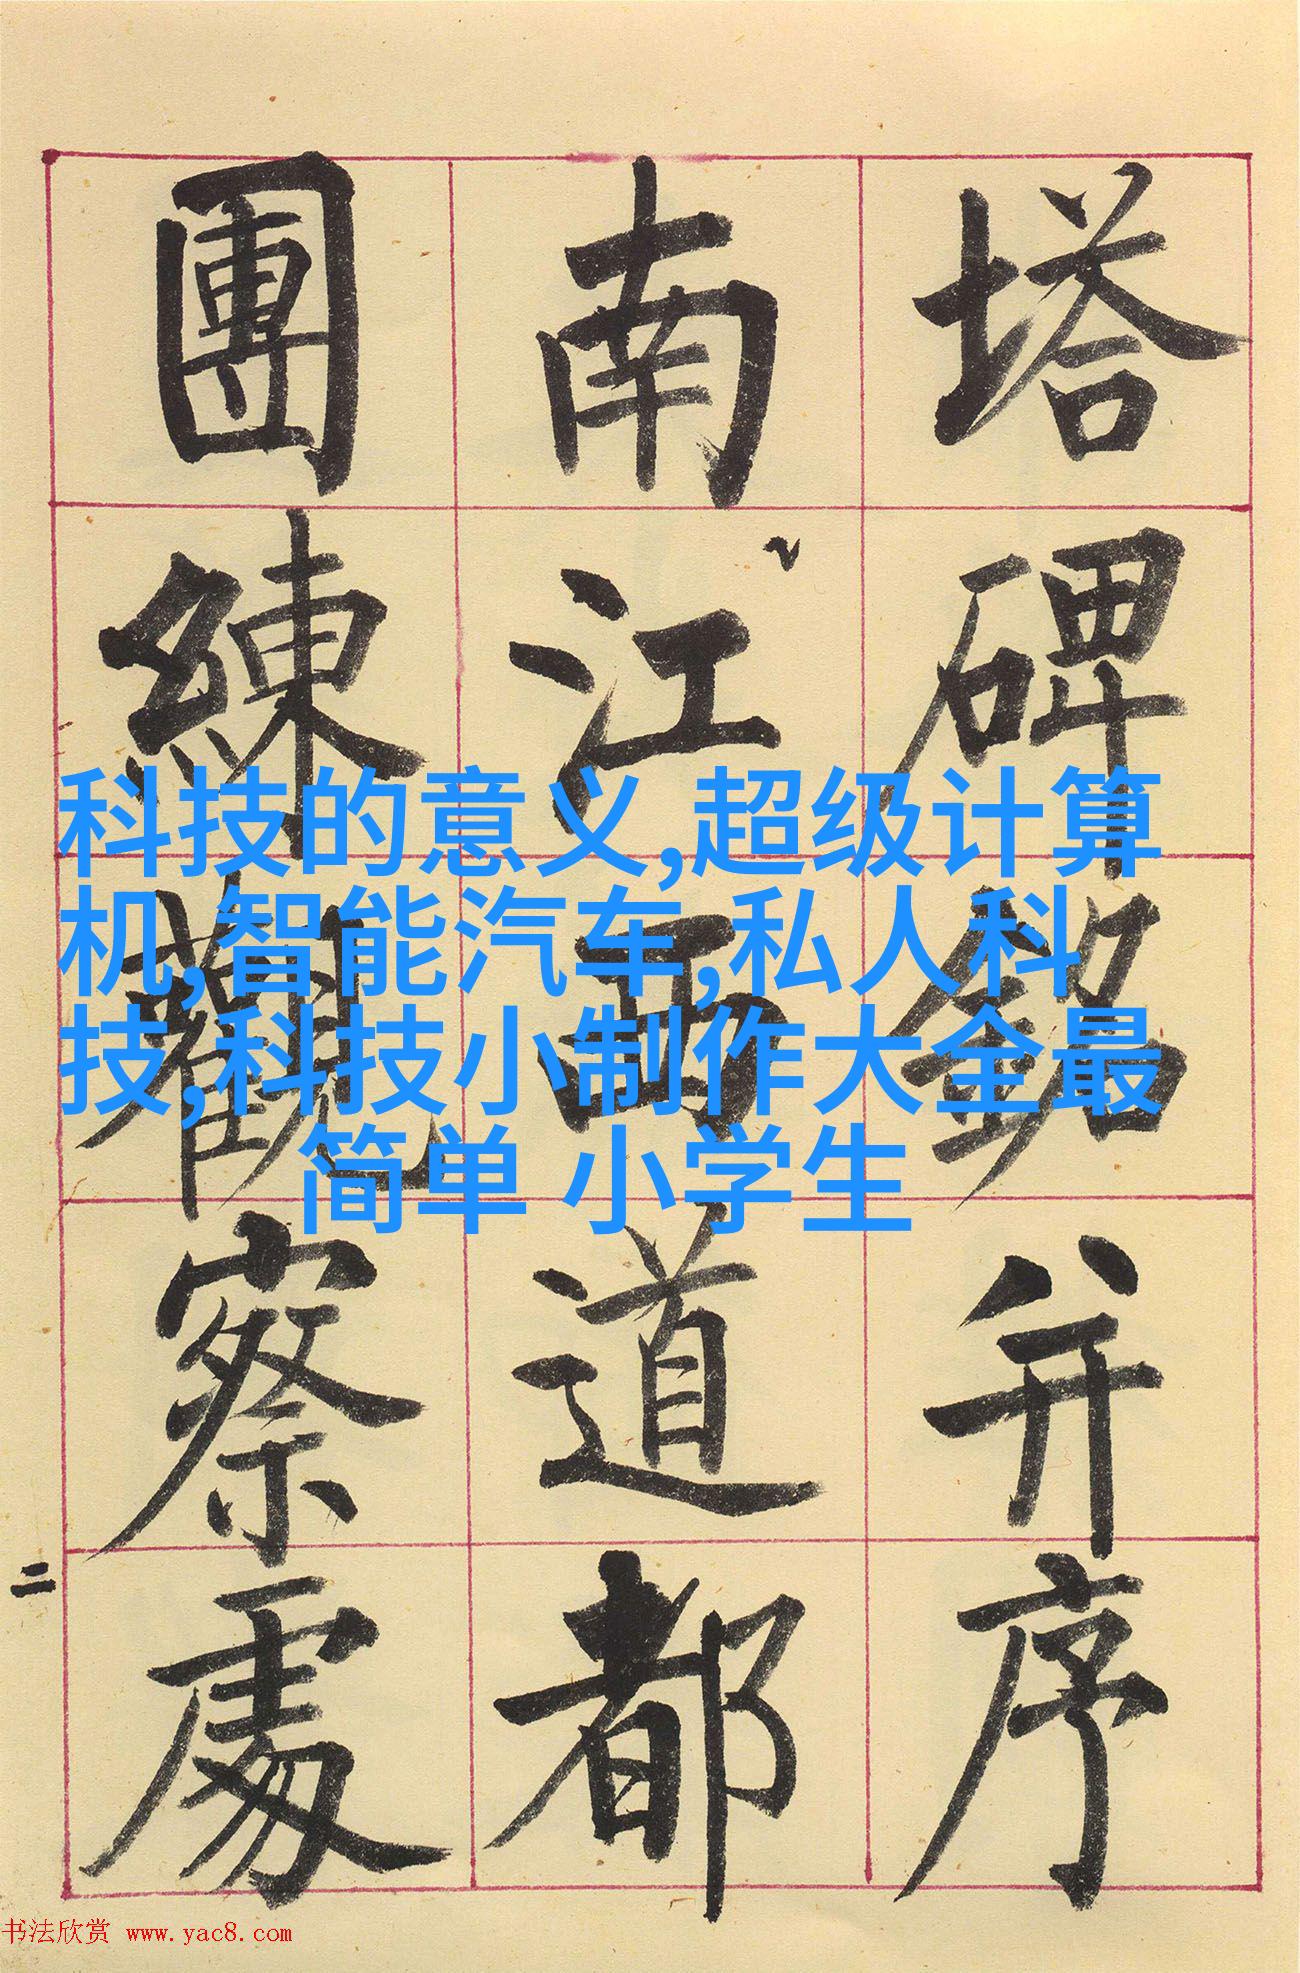 塔碑銘并序
南江西道都
團練觀察處
二
科技的意义,超级计算
机,智能汽车,私人科
技,科技小制作大全最
简单 小学生
书法欣赏 www.yac8.com